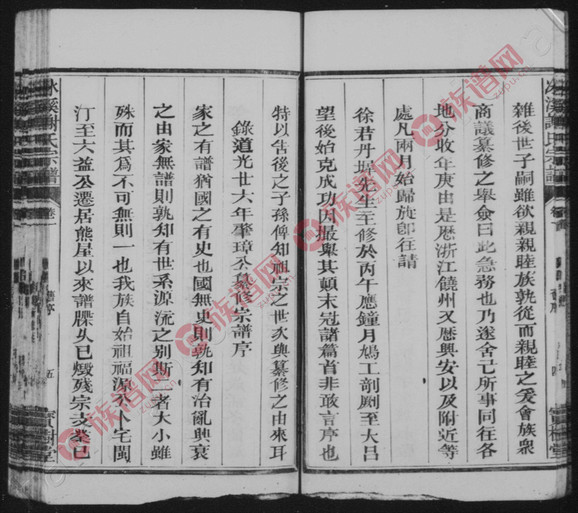 雜後世子嗣雖欲親親睦族孰從而親睦之爰會族衆
商議纂修之舉僉曰此急務也乃遂舍己所事同往各
地分收年庚由是歷浙江饒州又歷興安以及附近等
處凡兩月始歸旋卽往請
徐君丹墀先生主修於丙午應鐘月鳩工剞劂至大呂
望後始克成功因最舉其顛末冠諸篇首非敢言序也
特以告後之子孫俾知祖宗之世次與纂修之由來耳
錄道光廿六年肇璋公纂修宗譜序
家之有譜猶國之有史也國無史則孰知有治亂興衰
之由家無譜則孰知有世系源流之別斯二者大小雖
殊而其爲不可無則一也我族自始祖福源公人宅閩
汀至六益公遷居熊屋以來譜牒久已燬殘宗支葢已
冰溪謝氏宗譜
卷一
舊序
五
寶樹堂
族谱网